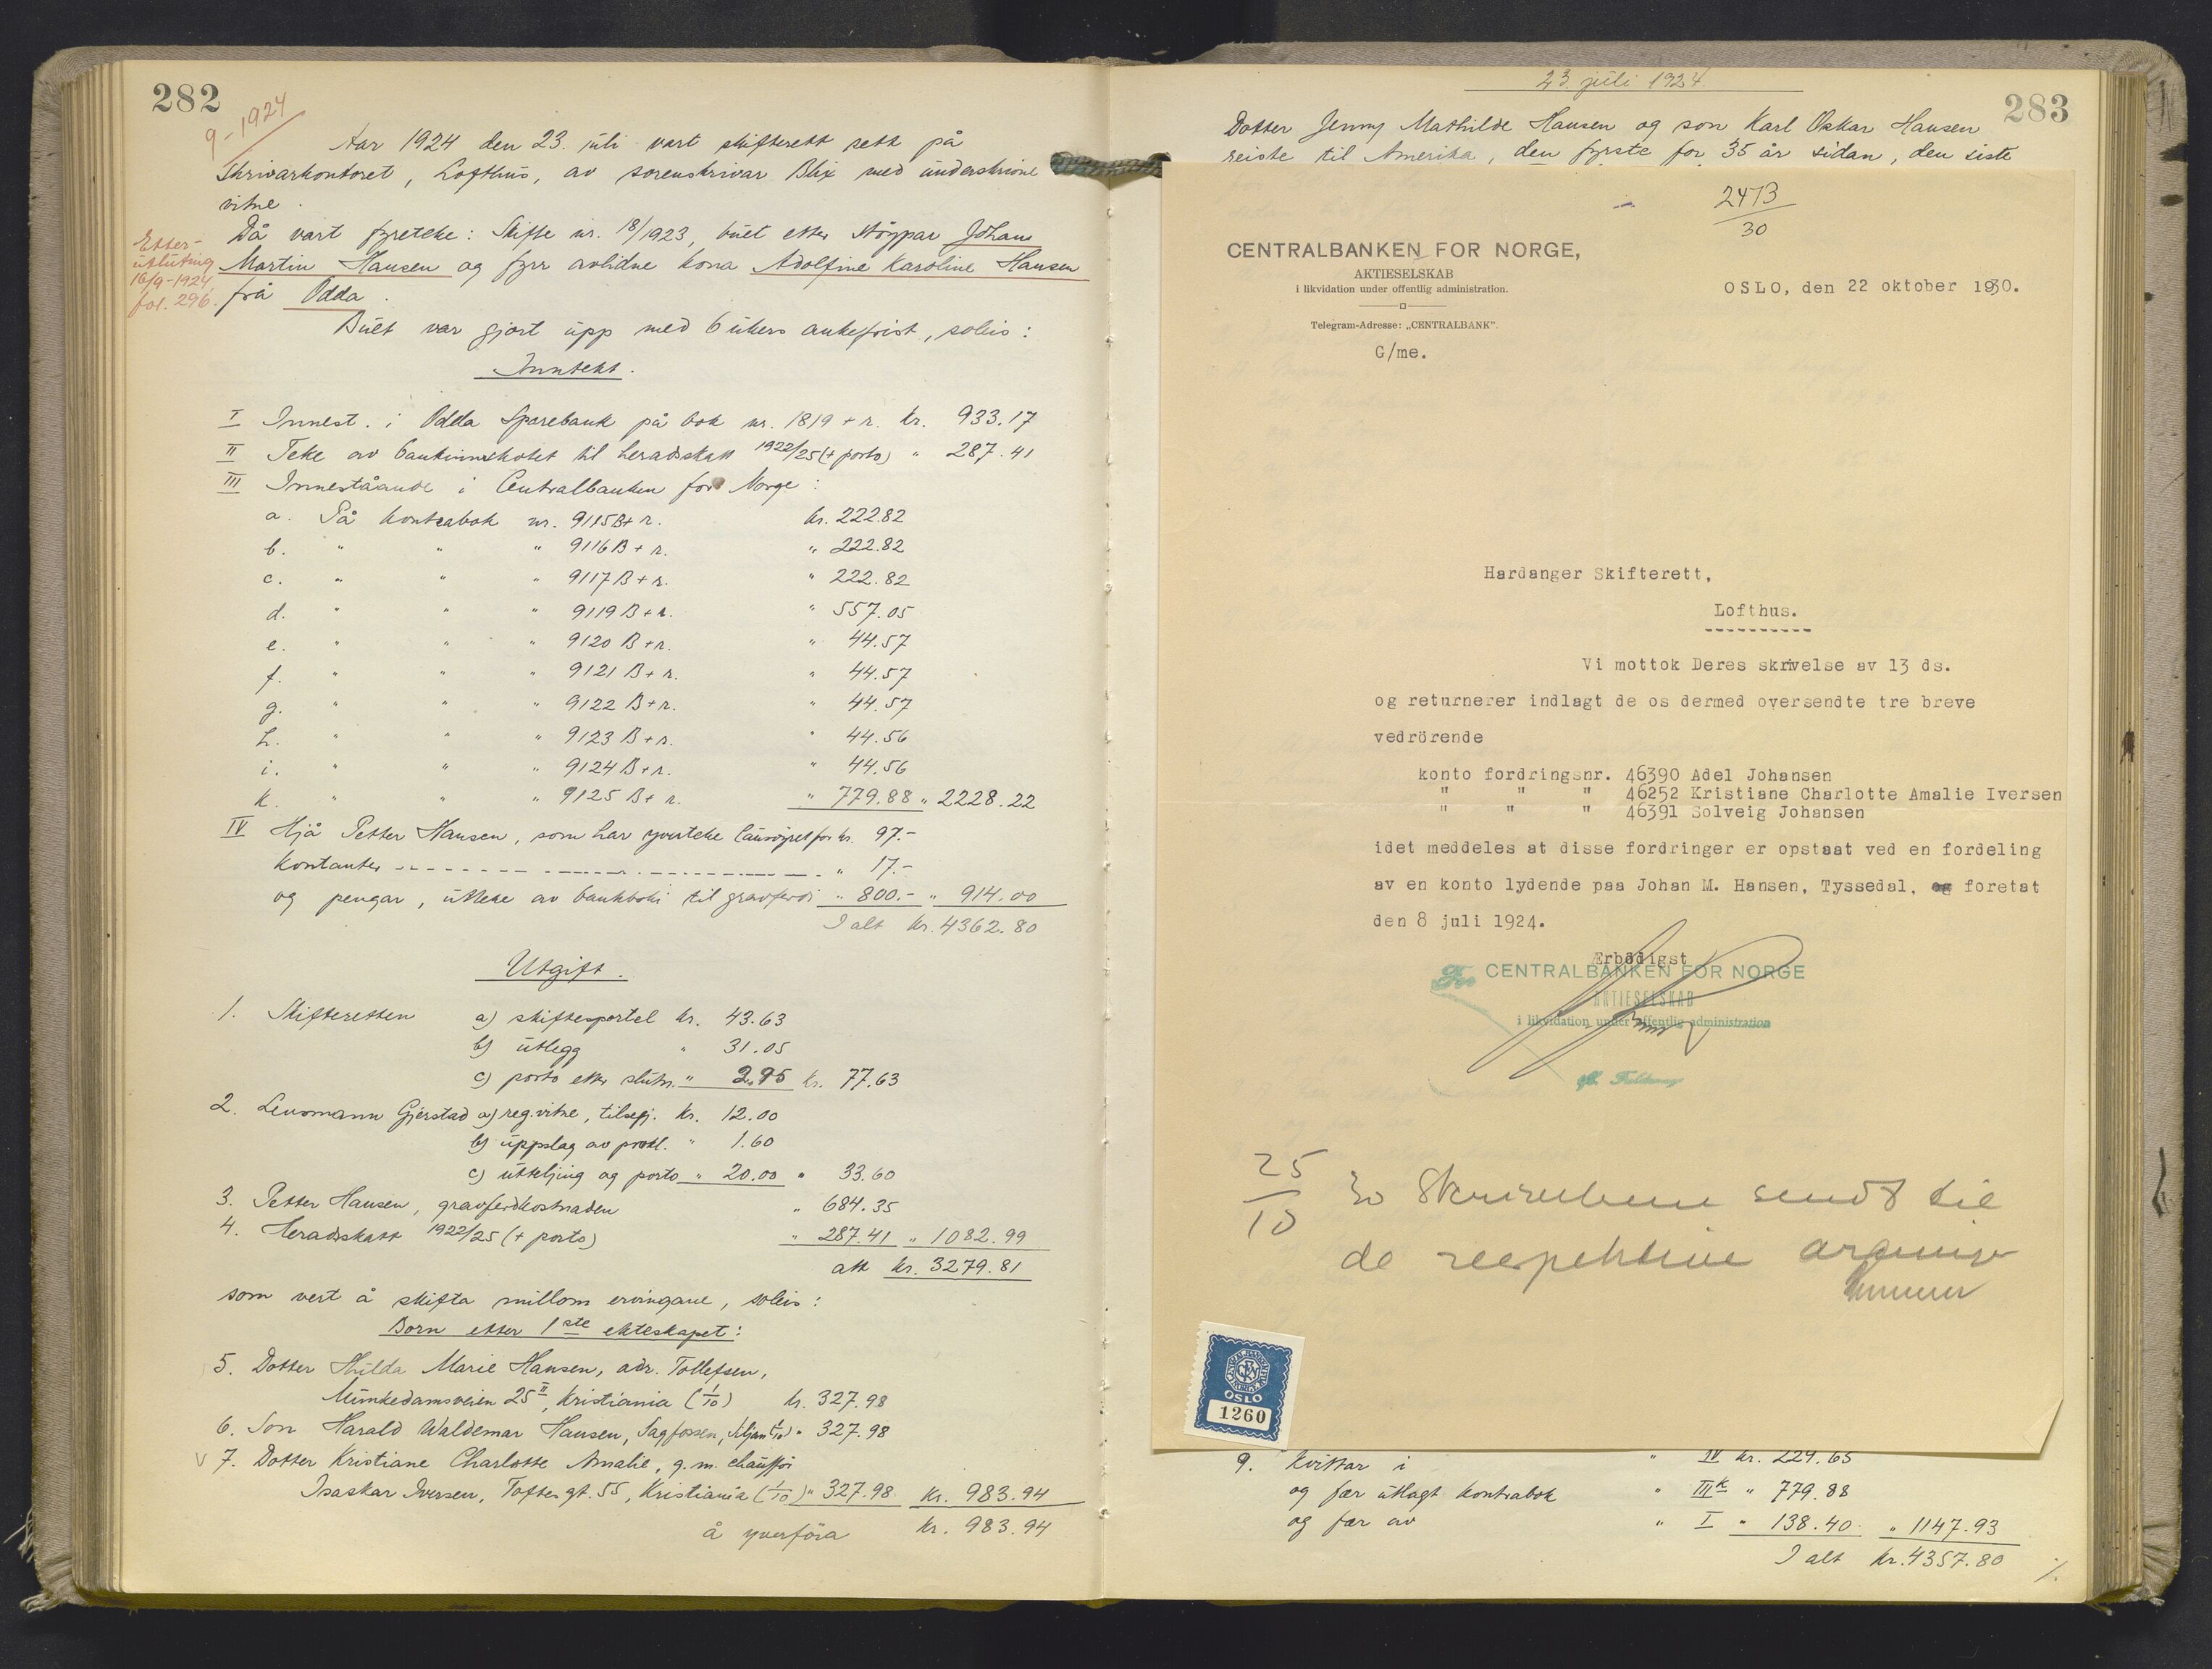 282
9-1924
Aar 1924 den 23. juli vart skifterett sett på
Skrivarkontoret, Lofthus, av sorenskrivar Blix med underskrivne
vitne.
Etter-
utlutning
16/9-1924,
fol. 296.
Då vart fyreteke: Skifte nr. 18/1923, buet etter Johans
Martin Hansen og fyrr avlidne kona Adolfine Karoline Hansen
frå Odda.
Buet var gjort upp med 6 ukers ankefrist, soleis:
Inntekt.
I Innest. i Odda Sparebank på bok nr. 1819 + r. kr. 933.17
II Teke av bankinnskotet til heradskatt 1922/25 (+ porto) " 287.41
III Inneståande i Centralbanken for Norge:
a. På kontrabok nr. 9115 B + r. kr. 222.82
b. " " " 9116 B + r. " 222.82
c. " " " 9117 B + r. " 222.82
d. " " " 9119 B + r. " 557.05
e. " " " 9120 B + r. " 44.57
f. " " " 9121 B + r. " 44.57
g. " " " 9122 B + r. " 44.57
h. " " " 9123 B + r. " 44.56
i. " " " 9124 B + r. " 44.56
k. " " " 9125 B + r. " 779.88 " 2228.22
IV Hjå Petter Hansen, som har yverteke lausøyret for kr. 97.-
Kontanter " 17.-
og pengar, utteke av bankboki til gravferdi " 800.- " 914.00
I alt kr. 4362.80
Utgift.
1. Skifteretten a) skiftesportel kr. 43.63
b) utlegg " 31.05
c) porto etter slutn. " 2.95 kr. 77.63
2. Lensmann Gjerstad a) reg.vitne, tilsegj. kr. 12.00
b) uppslag av prokl. " 1.60
c) utteljing og porto " 20.00 " 33.60
3. Petter Hansen, gravferdkostnaden " 684.35
4. Heradskatt 1922/25 (+ porto) " 287.41 " 1082.99
att kr. 3279.81
som vert å skifta millom ervingane, soleis:
Born etter 1ste ekteskapet:
5. Dotter Hilda Marie Hansen, adr. Tollefsen,
Munkedamsveien 25 II, Kristiania (1/10) kr. 327.98
6. Son Harald Waldemar Hansen, Sagfossen, (1/10) " 327.98
v 7. Dotter Kristiane Charlotte Amalie, g.m. chauffør
Isaskar Iversen, Toftes gt. 55, Kristiania (1/10) " 327.98 kr. 983.94
å yverföra kr. 983.94
23 juli 1924.
283
Dotter Jenny Mathilde Hansen og son Karl Oskar Hansen
reiste til Amerika, den fyrste for 35 år sidan, den siste
2473
30
CENTRALBANKEN FOR NORGE,
AKTIESELSKAB
i likvidation under offentlig administration.
Telegram-Adresse: „CENTRALBANK".
OSLO, den 22 oktober 1930.
G/me.
Hardanger Skifterett,
Lofthus.
Vi mottok Deres skrivelse av 13 ds.
og returnerer indlagt de os dermed oversendte tre breve
vedrörende
konto fordringsnr. 46390 Adel Johansen
" " " 46252 Kristiane Charlotte Amalie Iversen
" " " 46391 Solveig Johansen
idet meddeles at disse fordringer er opstaat ved en fordeling
av en konto lydende paa Johan M. Hansen, Tyssedal, og foretat
den 8 juli 1924.
Ærbödigst
For CENTRALBANKEN FOR NORGE
AKTIESELSKAB
i likvidation under offentlig administration
25
10
30 Skrivelsene sendt til
de respektive
OSLO
1260
9. Kvittar i " IV kr. 229.65
og fær utlagt kontrabok " III k " 779.88
og fær av " I " 138.40 " 1147.93
I alt kr. 4357.80
./.